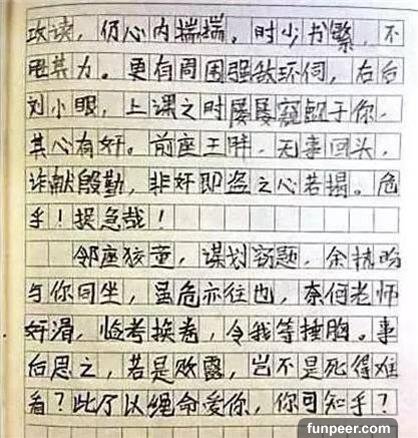 攻读，仍心内揣揣。时少书繁，不
胜其力。更有周围强敌环伺，右后
刘小眼，上课之时屡屡窥觎于你，
其心有奸。前座王胖，无事回头，
诈献殷勤，非奸即盗之心若揭。危
乎！捉急哉！
邻座孩童，谋划窃题，余抗盼
与你同坐，虽危亦往也，奈何老师
奸滑，临考换卷，令我等捶胸。事
后思之，若是败露，岂不是死得难
看？此乃以绳命爱你，你可知乎？
funpeer.com